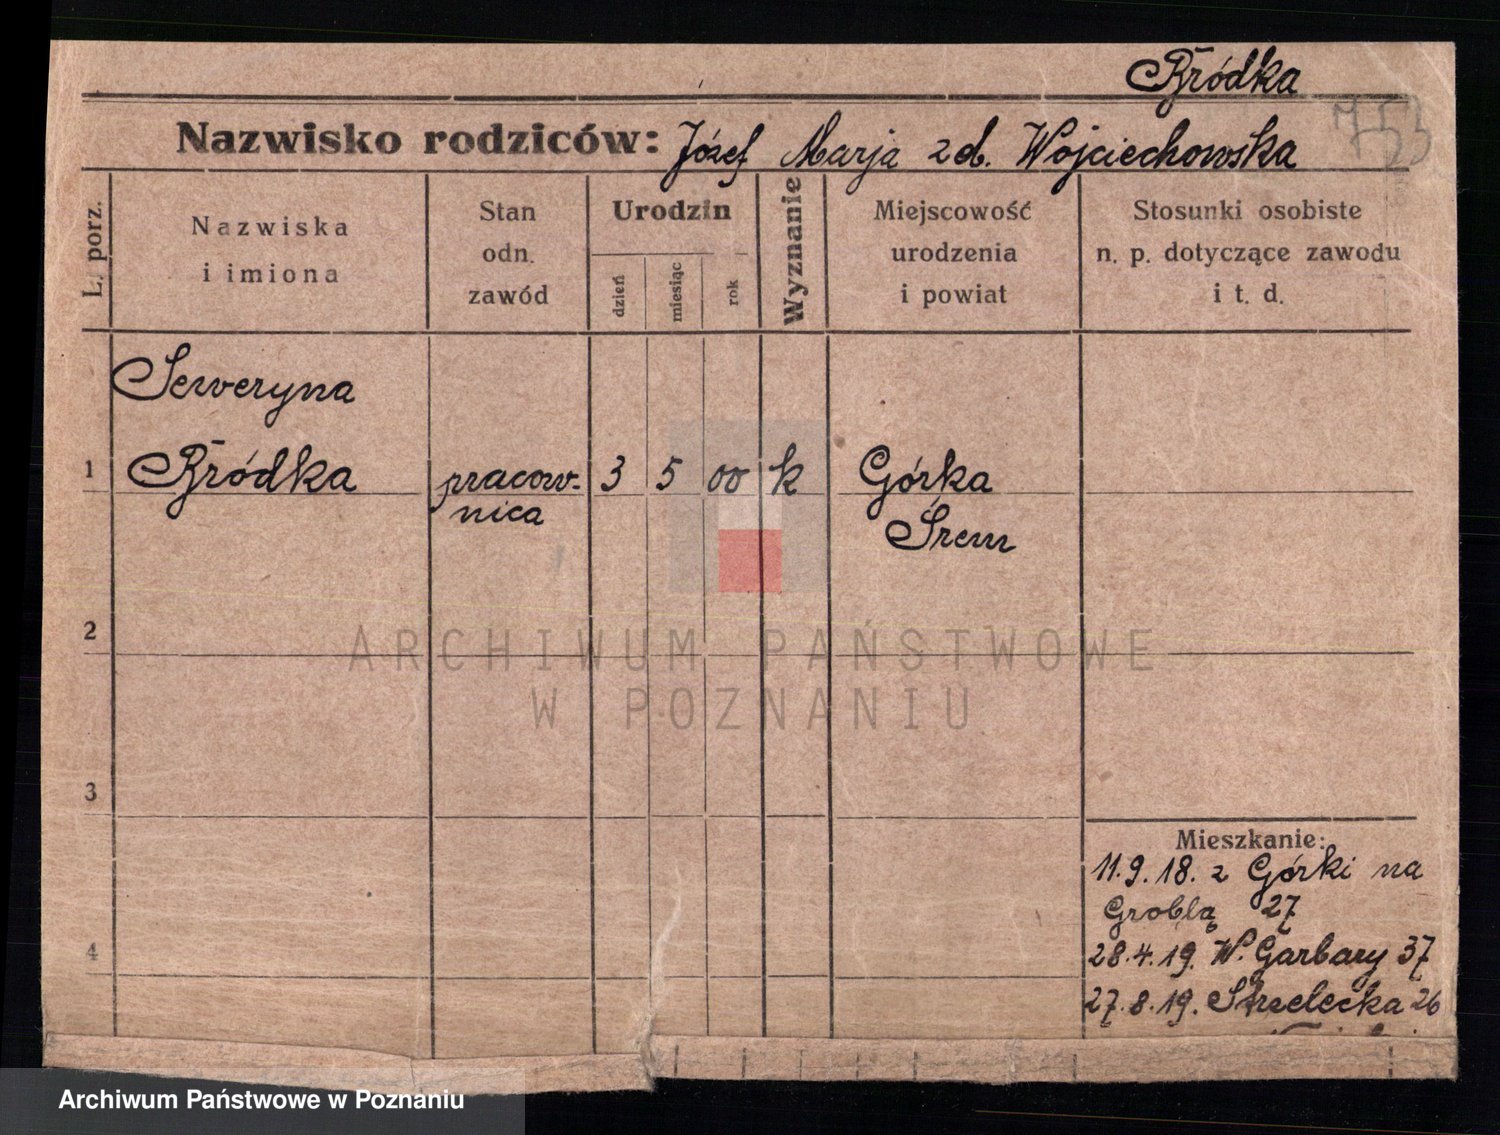 Bródka
Nazwisko rodziców: Józef Marja zd. Wojciechowska
753
L. porz.
Nazwiska
i imiona
Stan
odn.
zawód
Urodzin
dzień
miesiąc
rok
Wyznanie
Miejscowość
urodzenia
i powiat
Stosunki osobiste
n. p. dotyczące zawodu
i t. d.
Seweryna
1 Bródka pracow- 3 5 00 k Górka
nica Śrem
2
ARCHIWUM PAŃSTWOWE
W POZNANIU
3
Mieszkanie:
11.9.18. z Górki na
Groblą 27
4
28.4.19. W. Garbary 37
27.8.19. Strzelecka 26
Archiwum Państwowe w Poznaniu